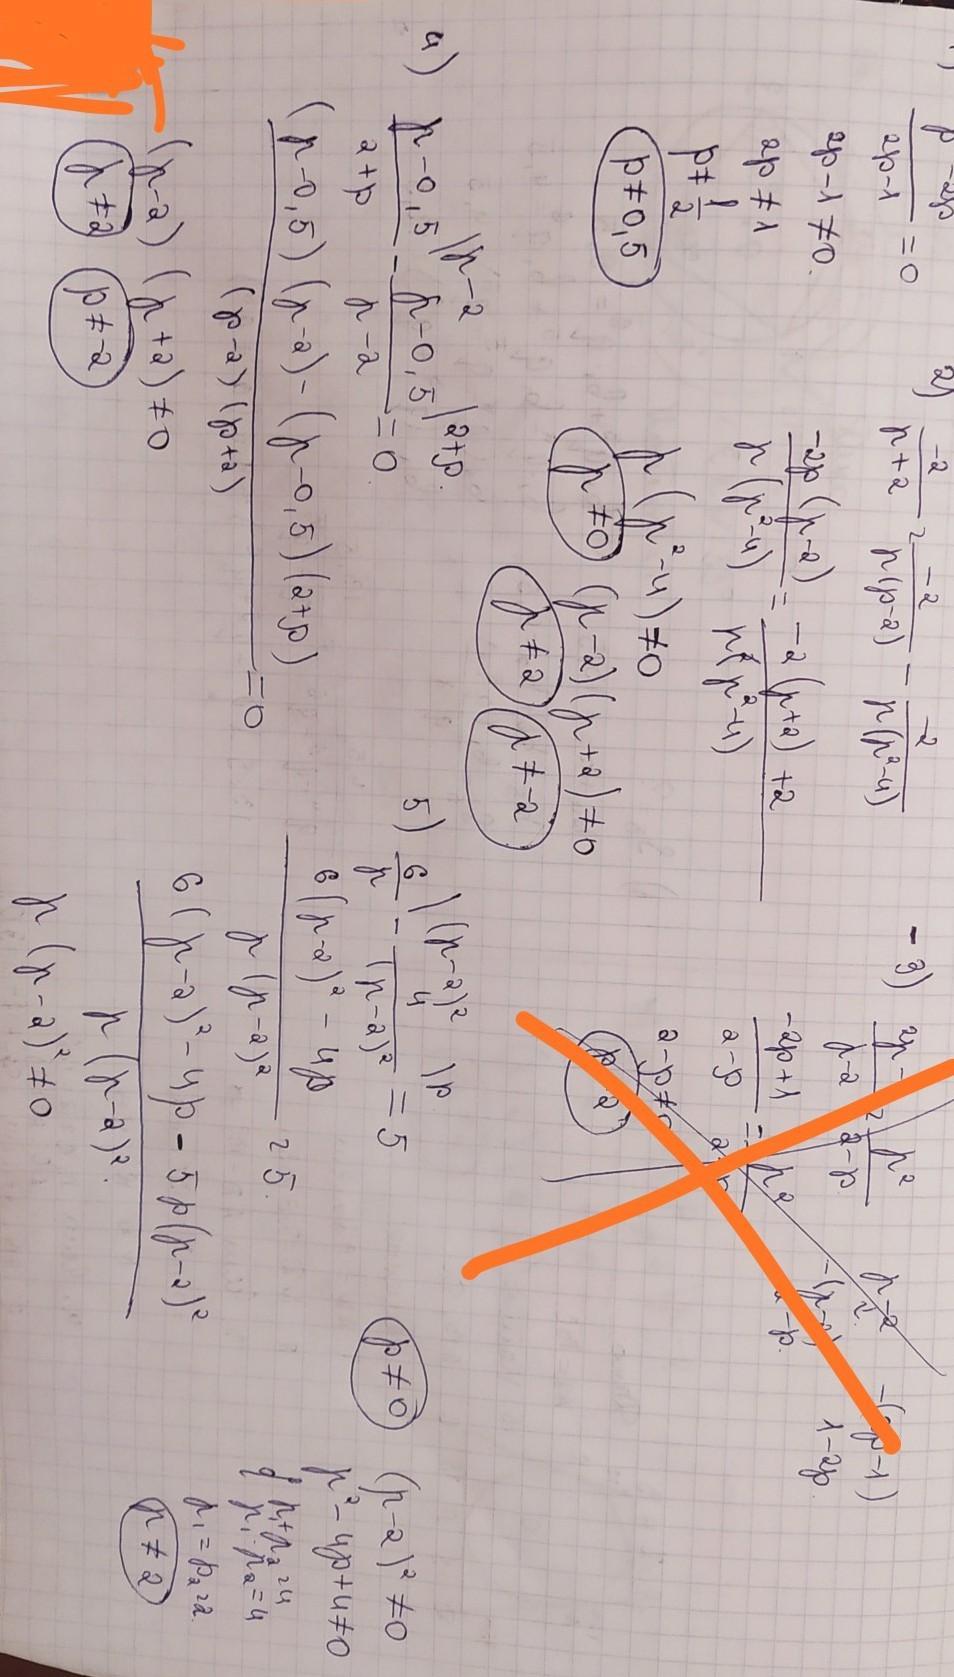 1)
p - 2p / 2p-1 = 0
2p-1 ≠ 0.
2p ≠ 1
p ≠ 1/2
p ≠ 0,5
2) -2 / p+2 = -2 / p(p-2) - -2 / p(p²-4)
-2p(p-2) / p(p²-4) = -2(p+2) + 2 / p(p²-4)
p(p²-4) ≠ 0
p ≠ 0 (p-2)(p+2) ≠ 0
p ≠ 2 p ≠ -2
- 3)
p-2 = p² / 2-p
-2p+1 / 2-p = p²
2-p ≠
p-2
-(p-2)
-p.
-(2p-1)
1-2p.
4) p-0,5 \p-2 / 2+p - p-0,5 \2+p. / p-2 = 0
(p-0,5)(p-2) - (p-0,5)(2+p) / (p-2)(p+2) = 0
(p-2)(p+2) ≠ 0
p ≠ 2 p ≠ -2
5) 6 \(p-2)² / p - 4 \p / (p-2)² = 5
6(p-2)² - 4p / p(p-2)² = 5.
6(p-2)² - 4p - 5p(p-2)² / p(p-2)².
p(p-2)² ≠ 0
p ≠ 0 (p-2)² ≠ 0
p² - 4p + 4 ≠ 0
p₁ + p₂ = 4
p₁ · p₂ = 4
p₁ = p₂ = 2.
p ≠ 2